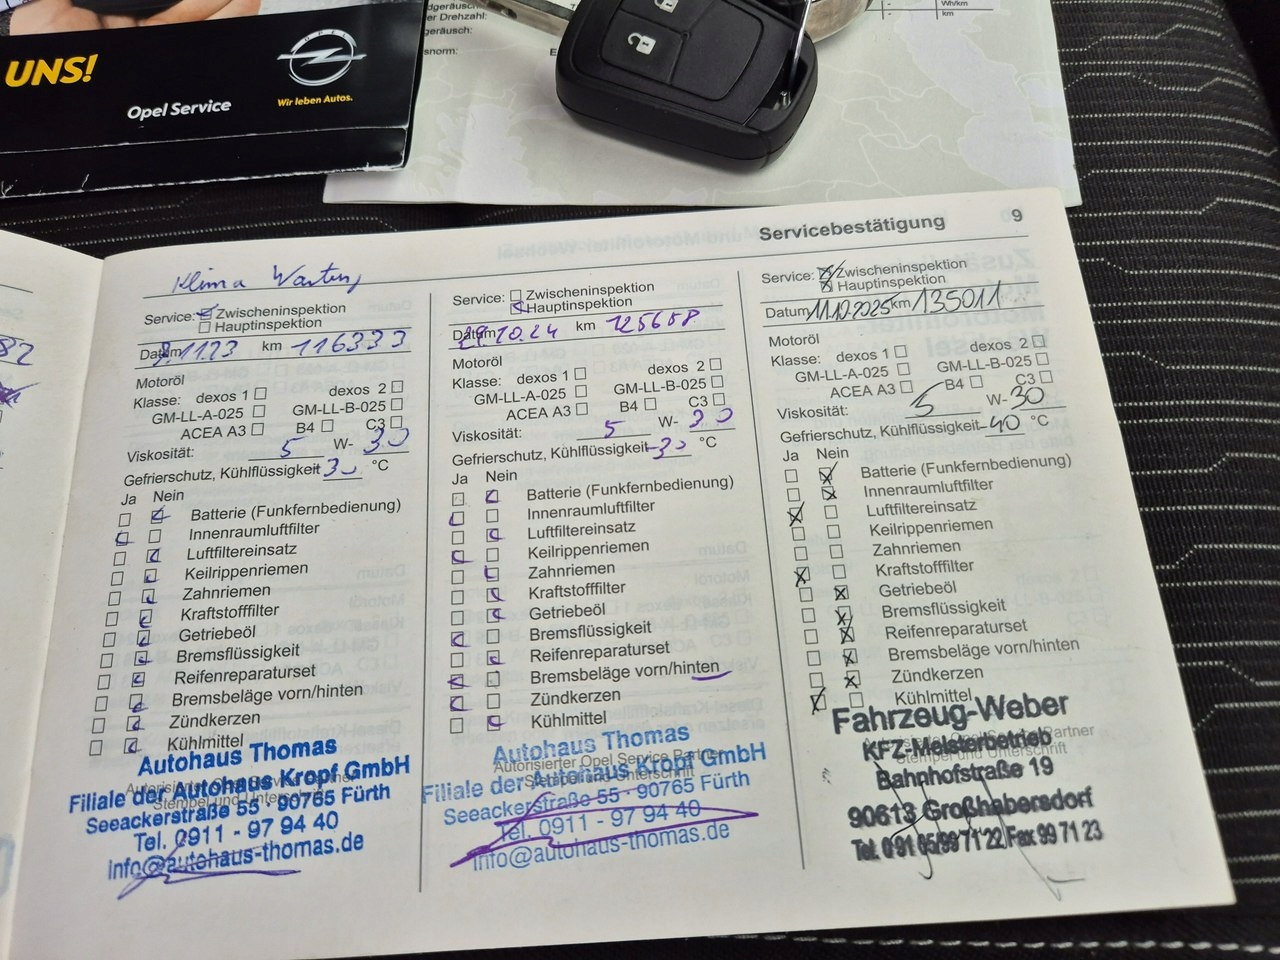 UNS!
Opel Service
OPEL
Wir leben Autos.
er Drehzahl:
geräusch:
snorm:
Wh/km
km
Servicebestätigung 9
Klima Wartung
Service: Zwischeninspektion
Hauptinspektion
Datum 9.11.23 km 116333
Motoröl
Klasse: dexos 1 dexos 2
GM-LL-A-025 GM-LL-B-025
ACEA A3 B4 C3
Viskosität: 5 W- 30
Gefrierschutz, Kühlflüssigkeit -30 °C
Ja Nein
Batterie (Funkfernbedienung)
Innenraumluftfilter
Luftfiltereinsatz
Keilrippenriemen
Zahnriemen
Kraftstofffilter
Getriebeöl
Bremsflüssigkeit
Reifenreparaturset
Bremsbeläge vorn/hinten
Zündkerzen
Kühlmittel
Autorisierter Opel Service Partner
Stempel und Unterschrift
Autohaus Thomas
Filiale der Autohaus Kropf GmbH
Seeackerstraße 55 · 90765 Fürth
Tel. 0911 - 97 94 40
info@autohaus-thomas.de
Service: Zwischeninspektion
Hauptinspektion
Datum 29.10.24 km 125658
Motoröl
Klasse: dexos 1 dexos 2
GM-LL-A-025 GM-LL-B-025
ACEA A3 B4 C3
Viskosität: 5 W- 30
Gefrierschutz, Kühlflüssigkeit -30 °C
Ja Nein
Batterie (Funkfernbedienung)
Innenraumluftfilter
Luftfiltereinsatz
Keilrippenriemen
Zahnriemen
Kraftstofffilter
Getriebeöl
Bremsflüssigkeit
Reifenreparaturset
Bremsbeläge vorn/hinten
Zündkerzen
Kühlmittel
Autorisierter Opel Service Partner
Stempel und Unterschrift
Autohaus Thomas
Filiale der Autohaus Kropf GmbH
Seeackerstraße 55 · 90765 Fürth
Tel. 0911 - 97 94 40
info@autohaus-thomas.de
Service: Zwischeninspektion
Hauptinspektion
Datum 11.12.2025 km 135011
Motoröl
Klasse: dexos 1 dexos 2
GM-LL-A-025 GM-LL-B-025
ACEA A3 B4 C3
Viskosität: 5 W- 30
Gefrierschutz, Kühlflüssigkeit -40 °C
Ja Nein
Batterie (Funkfernbedienung)
Innenraumluftfilter
Luftfiltereinsatz
Keilrippenriemen
Zahnriemen
Kraftstofffilter
Getriebeöl
Bremsflüssigkeit
Reifenreparaturset
Bremsbeläge vorn/hinten
Zündkerzen
Kühlmittel
Opel Service Partner
Stempel und Unterschrift
Fahrzeug-Weber
KFZ-Meisterbetrieb
Bahnhofstraße 19
90613 Großhabersdorf
Tel. 09105/997122, Fax 997123